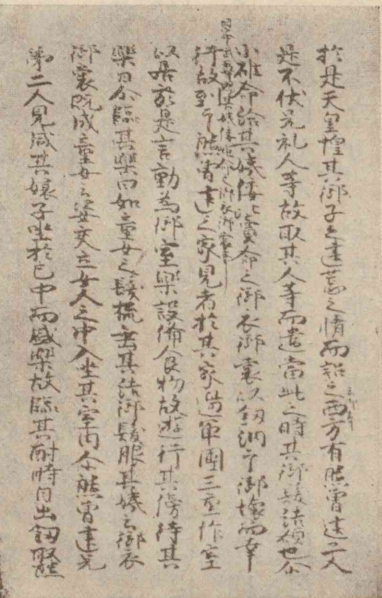 於是天皇惶其御子之建荒之情而詔之西方有熊曾建二人
是不伏无礼人等故取其人等而遣當此之時其御髮結額也尒
小碓命給其姨倭比賣命之御衣御裳以釼納于御懷而幸
行故到于熊曾建之家見者於其家邊軍圍三重作室
以居於是言動為御室樂設備食物故遊行其傍待其
樂日尒臨其樂日如童女之髮梳垂其結御髮服其姨之御衣
御裳既成童女之姿交立女人之中入坐其室内尒熊曾建兄
弟二人見咸其孃子坐於己中而盛樂故臨其酣時自出釼